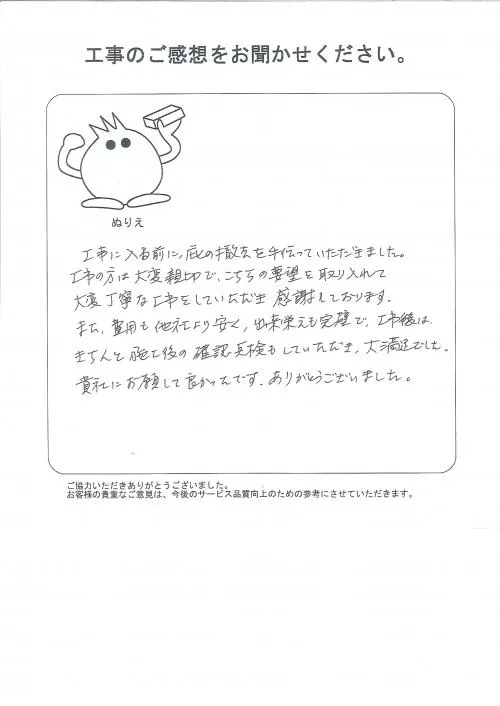 工事のご感想をお聞かせください。
ぬりえ
工事に入る前に、庇の撤去を手伝っていただきました。
工事の方は大変親切で、こちらの要望を取り入れて
大変丁寧な工事をしていただき 感謝しております。
また、費用も他社より安く、出来栄えも完璧で、工事後は、
きちんと施工後の確認点検もしていただき、大満足でした。
貴社にお願して良かったです。ありがとうございました。
ご協力いただきありがとうございました。
お客様の貴重なご意見は、今後のサービス品質向上のための参考にさせていただきます。